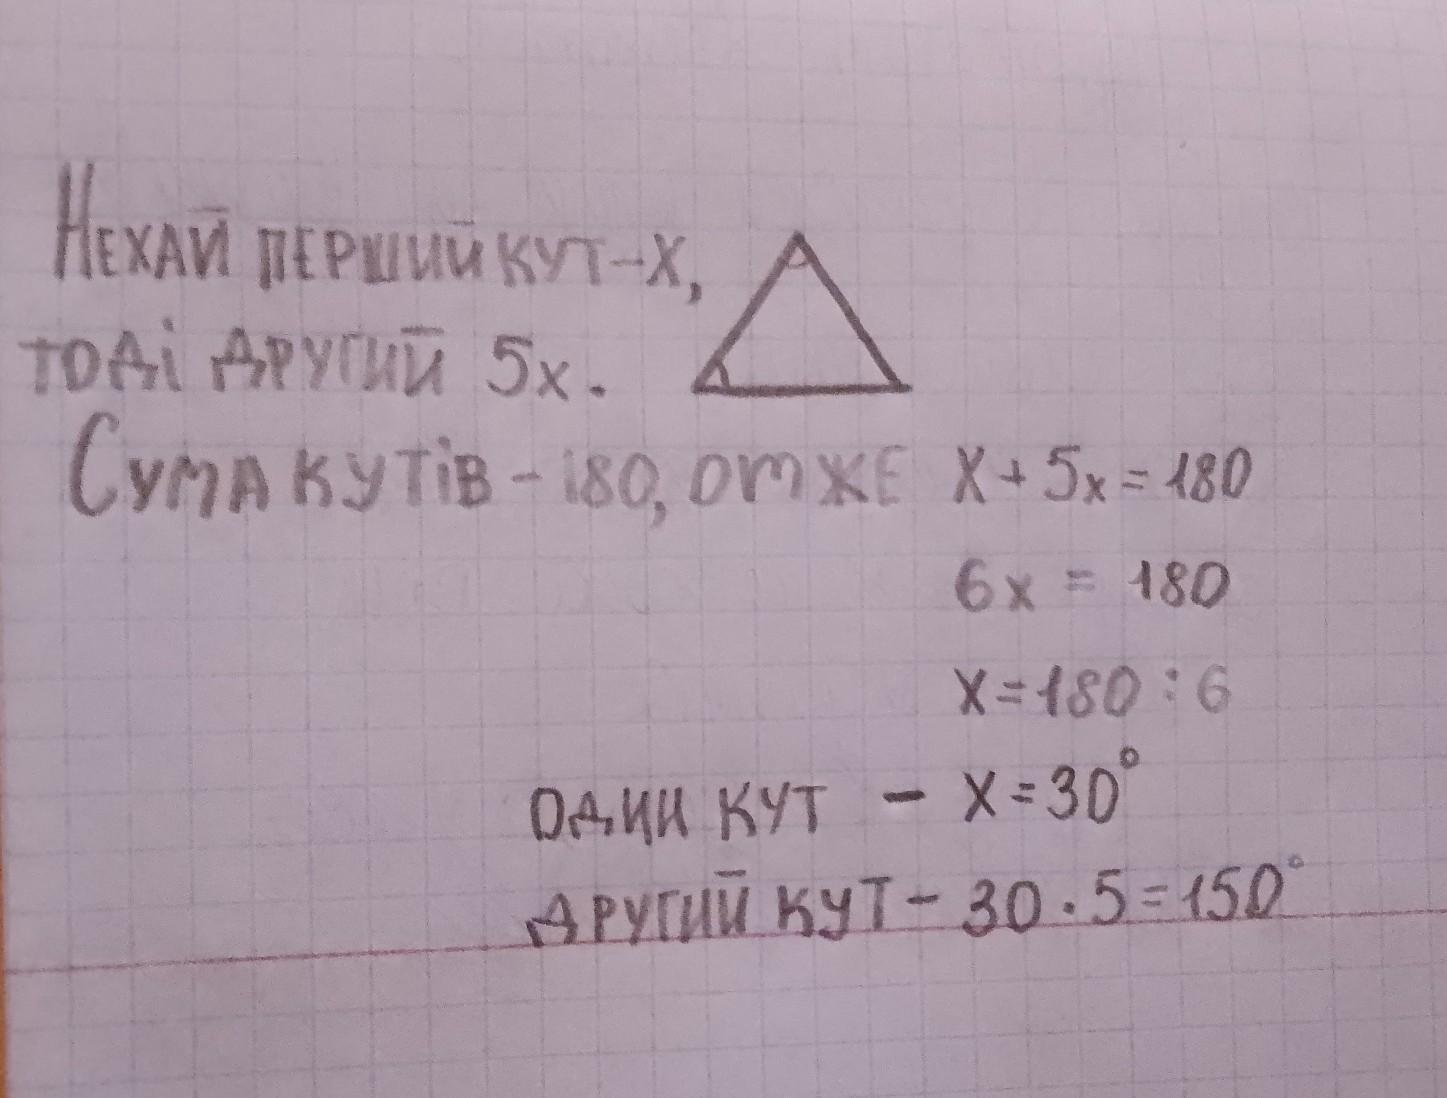 Нехай перший кут - х,
тоді другий 5х.
Сума кутів - 180, отже х + 5х = 180
6х = 180
х = 180 : 6
один кут - х = 30°
другий кут - 30 · 5 = 150°